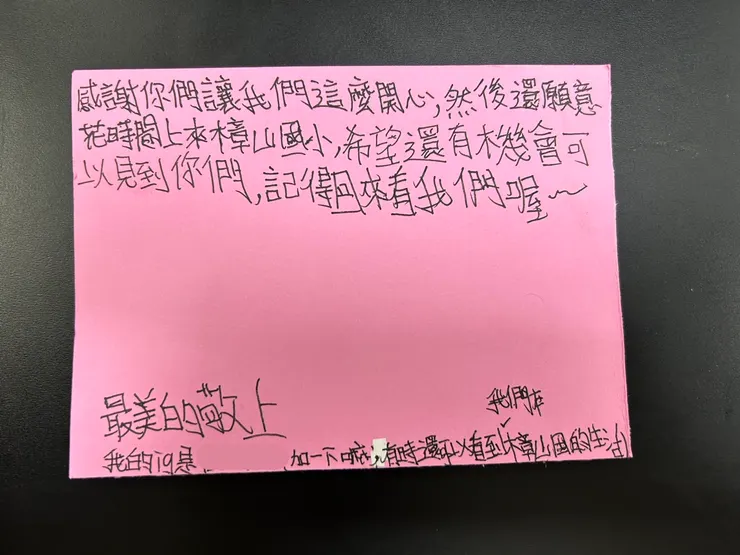 感謝你們讓我們這麼開心,然後還願意
花時間上來樟山國小,希望還有機會可
以見到你們,記得回來看我們喔~
最美的敬上
我們在
我的ig是
加一下 有時還可以看到樟山國的生活